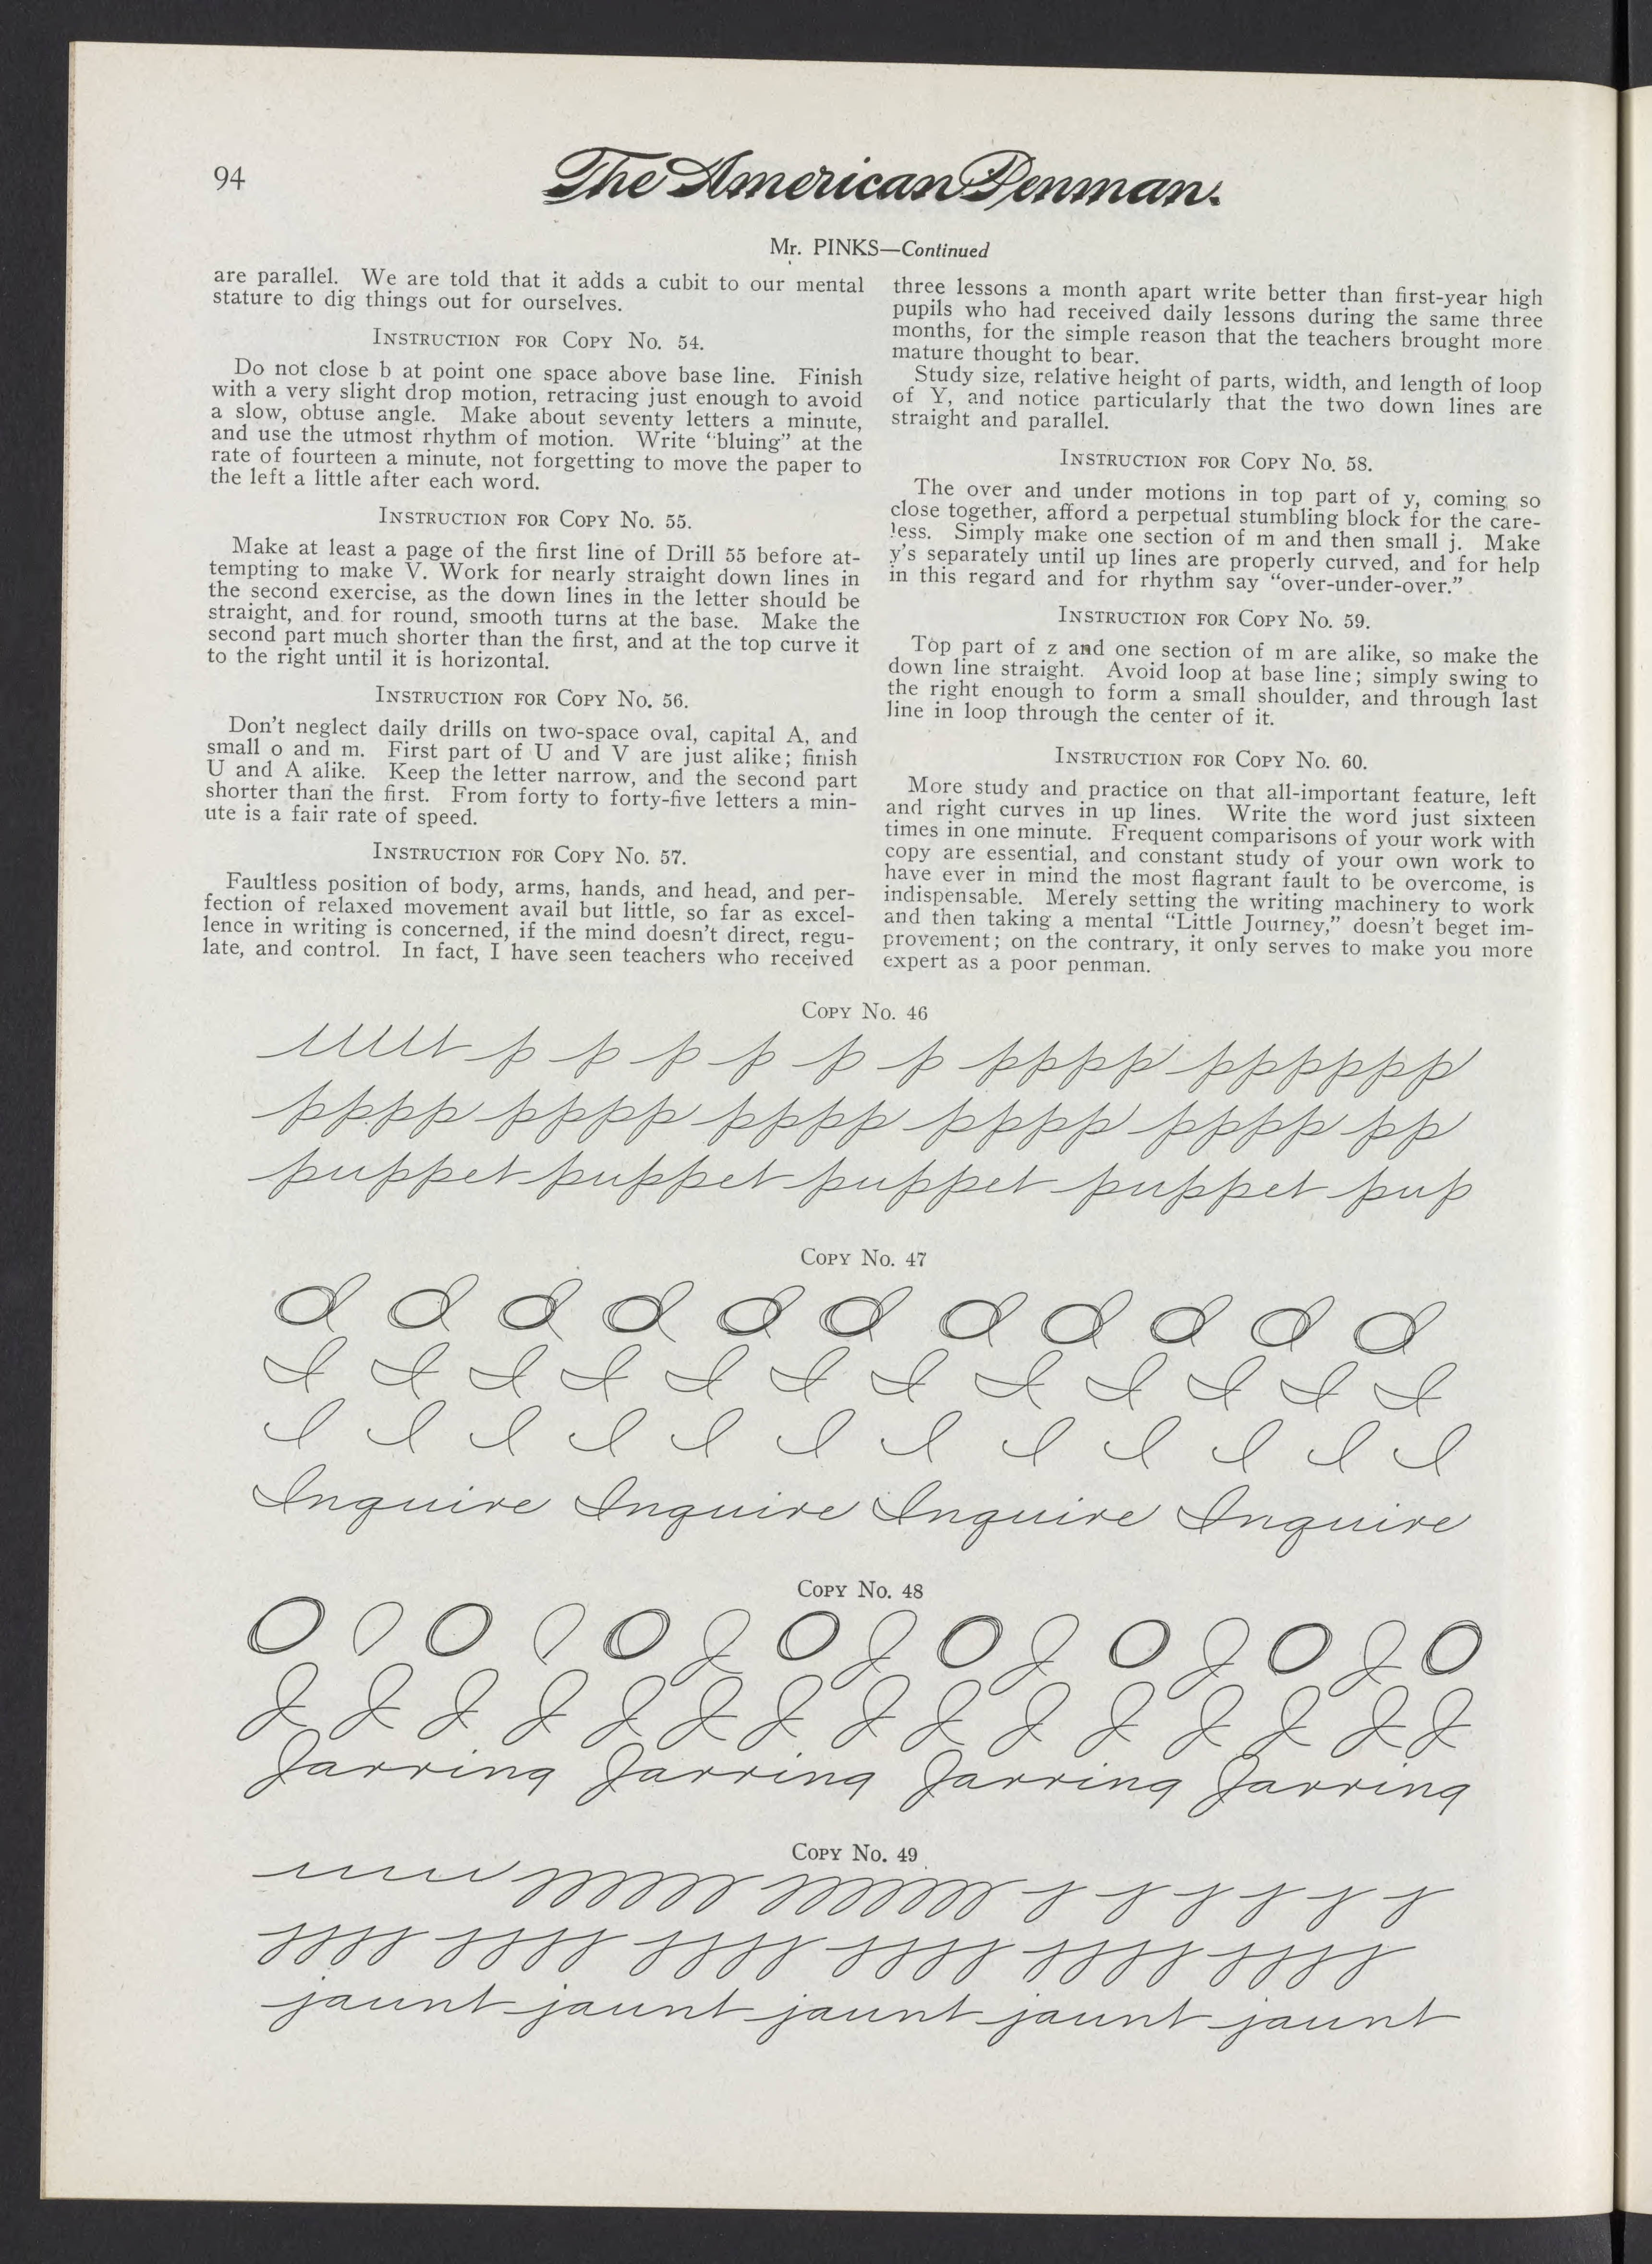 94
The American Penman.
Mr. PINKS—Continued
are parallel. We are told that it adds a cubit to our mental
stature to dig things out for ourselves.
INSTRUCTION FOR COPY NO. 54.
Do not close b at point one space above base line. Finish
with a very slight drop motion, retracing just enough to avoid
a slow, obtuse angle. Make about seventy letters a minute,
and use the utmost rhythm of motion. Write "bluing" at the
rate of fourteen a minute, not forgetting to move the paper to
the left a little after each word.
INSTRUCTION FOR COPY NO. 55.
Make at least a page of the first line of Drill 55 before at-
tempting to make V. Work for nearly straight down lines in
the second exercise, as the down lines in the letter should be
straight, and for round, smooth turns at the base. Make the
second part much shorter than the first, and at the top curve it
to the right until it is horizontal.
INSTRUCTION FOR COPY NO. 56.
Don't neglect daily drills on two-space oval, capital A, and
small o and m. First part of U and V are just alike; finish
U and A alike. Keep the letter narrow, and the second part
shorter than the first. From forty to forty-five letters a min-
ute is a fair rate of speed.
INSTRUCTION FOR COPY NO. 57.
Faultless position of body, arms, hands, and head, and per-
fection of relaxed movement avail but little, so far as excel-
lence in writing is concerned, if the mind doesn't direct, regu-
late, and control. In fact, I have seen teachers who received
three lessons a month apart write better than first-year high
pupils who had received daily lessons during the same three
months, for the simple reason that the teachers brought more
mature thought to bear.
Study size, relative height of parts, width, and length of loop
of Y, and notice particularly that the two down lines are
straight and parallel.
INSTRUCTION FOR COPY NO. 58.
The over and under motions in top part of y, coming so
close together, afford a perpetual stumbling block for the care-
less. Simply make one section of m and then small j. Make
y's separately until up lines are properly curved, and for help
in this regard and for rhythm say "over-under-over."
INSTRUCTION FOR COPY NO. 59.
Top part of z and one section of m are alike, so make the
down line straight. Avoid loop at base line; simply swing to
the right enough to form a small shoulder, and through last
line in loop through the center of it.
INSTRUCTION FOR COPY NO. 60.
More study and practice on that all-important feature, left
and right curves in up lines. Write the word just sixteen
times in one minute. Frequent comparisons of your work with
copy are essential, and constant study of your own work to
have ever in mind the most flagrant fault to be overcome, is
indispensable. Merely setting the writing machinery to work
and then taking a mental "Little Journey," doesn't beget im-
provement; on the contrary, it only serves to make you more
expert as a poor penman.
COPY NO. 46
p p p p p p pppp pppppp
pppp pppp pppp pppp pppp pp
puppet puppet puppet puppet pup
COPY NO. 47
I I I I I I I I I I I I
Inquire Inquire Inquire Inquire
COPY NO. 48
O O O J O J O J O J O J O
J J J J J J J J J J J J J J J
Jarring Jarring Jarring Jarring
COPY NO. 49
j j j j j j
jjjj jjjj jjjj jjjj jjjj jjjj
jaunt jaunt jaunt jaunt jaunt